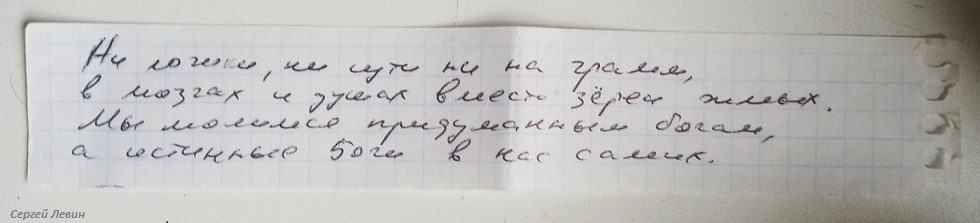 Ни логики, ни сути ни на грамм,
в мозгах и душах вместо зёрен жмых.
Мы молимся придуманным богам,
а истинные боги в нас самих.
Сергей Левин